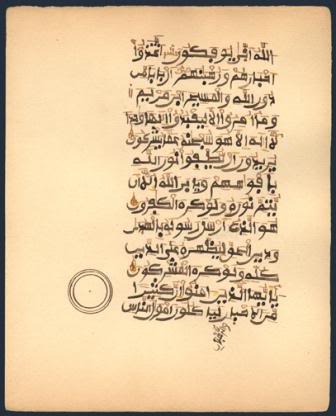 الله انى يوفكون اتخذوا
احبارهم ورهبنهم اربابا من
دون الله والمسيح ابن مريم
وما امروا الا ليعبدوا الها وحدا
لا اله الا هو سبحنه عما يشركون
يريدون ان يطفوا نور الله
بافوههم ويابى الله الا ان
يتم نوره ولو كره الكفرون
هو الذي ارسل رسوله بالهدى
ودين الحق ليظهره على الدين
كله ولو كره المشركون
يايها الذين امنوا ان كثيرا
من الاحبار لياكلون اموال الناس